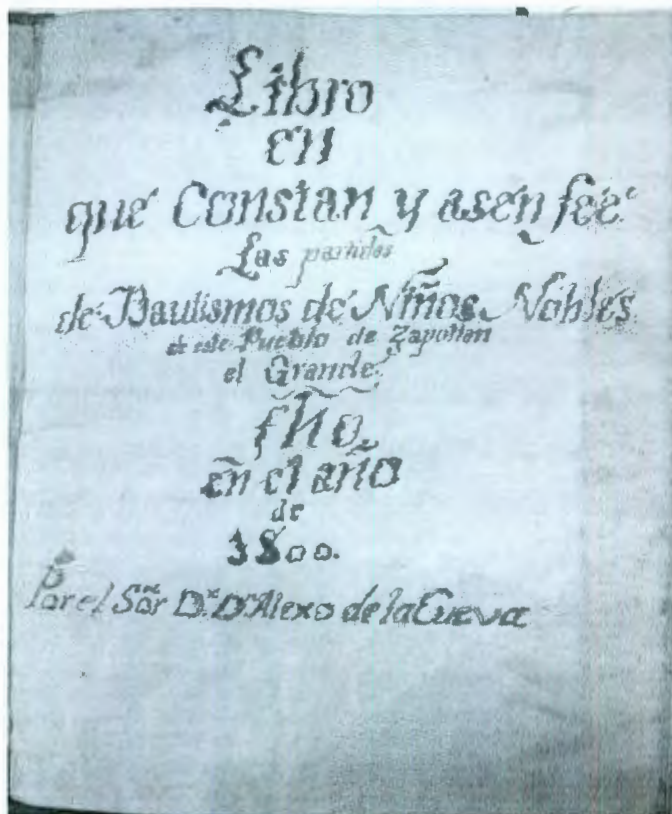 Libro
en
que Constan y asen feé
Las partidas
de Bautismos de Niños Nobles
de este Pueblo de Zapotlan
el Grande,
fho.
en el año
de
1800.
Por el Sõr Dr. Dn Alexo de la Cueva